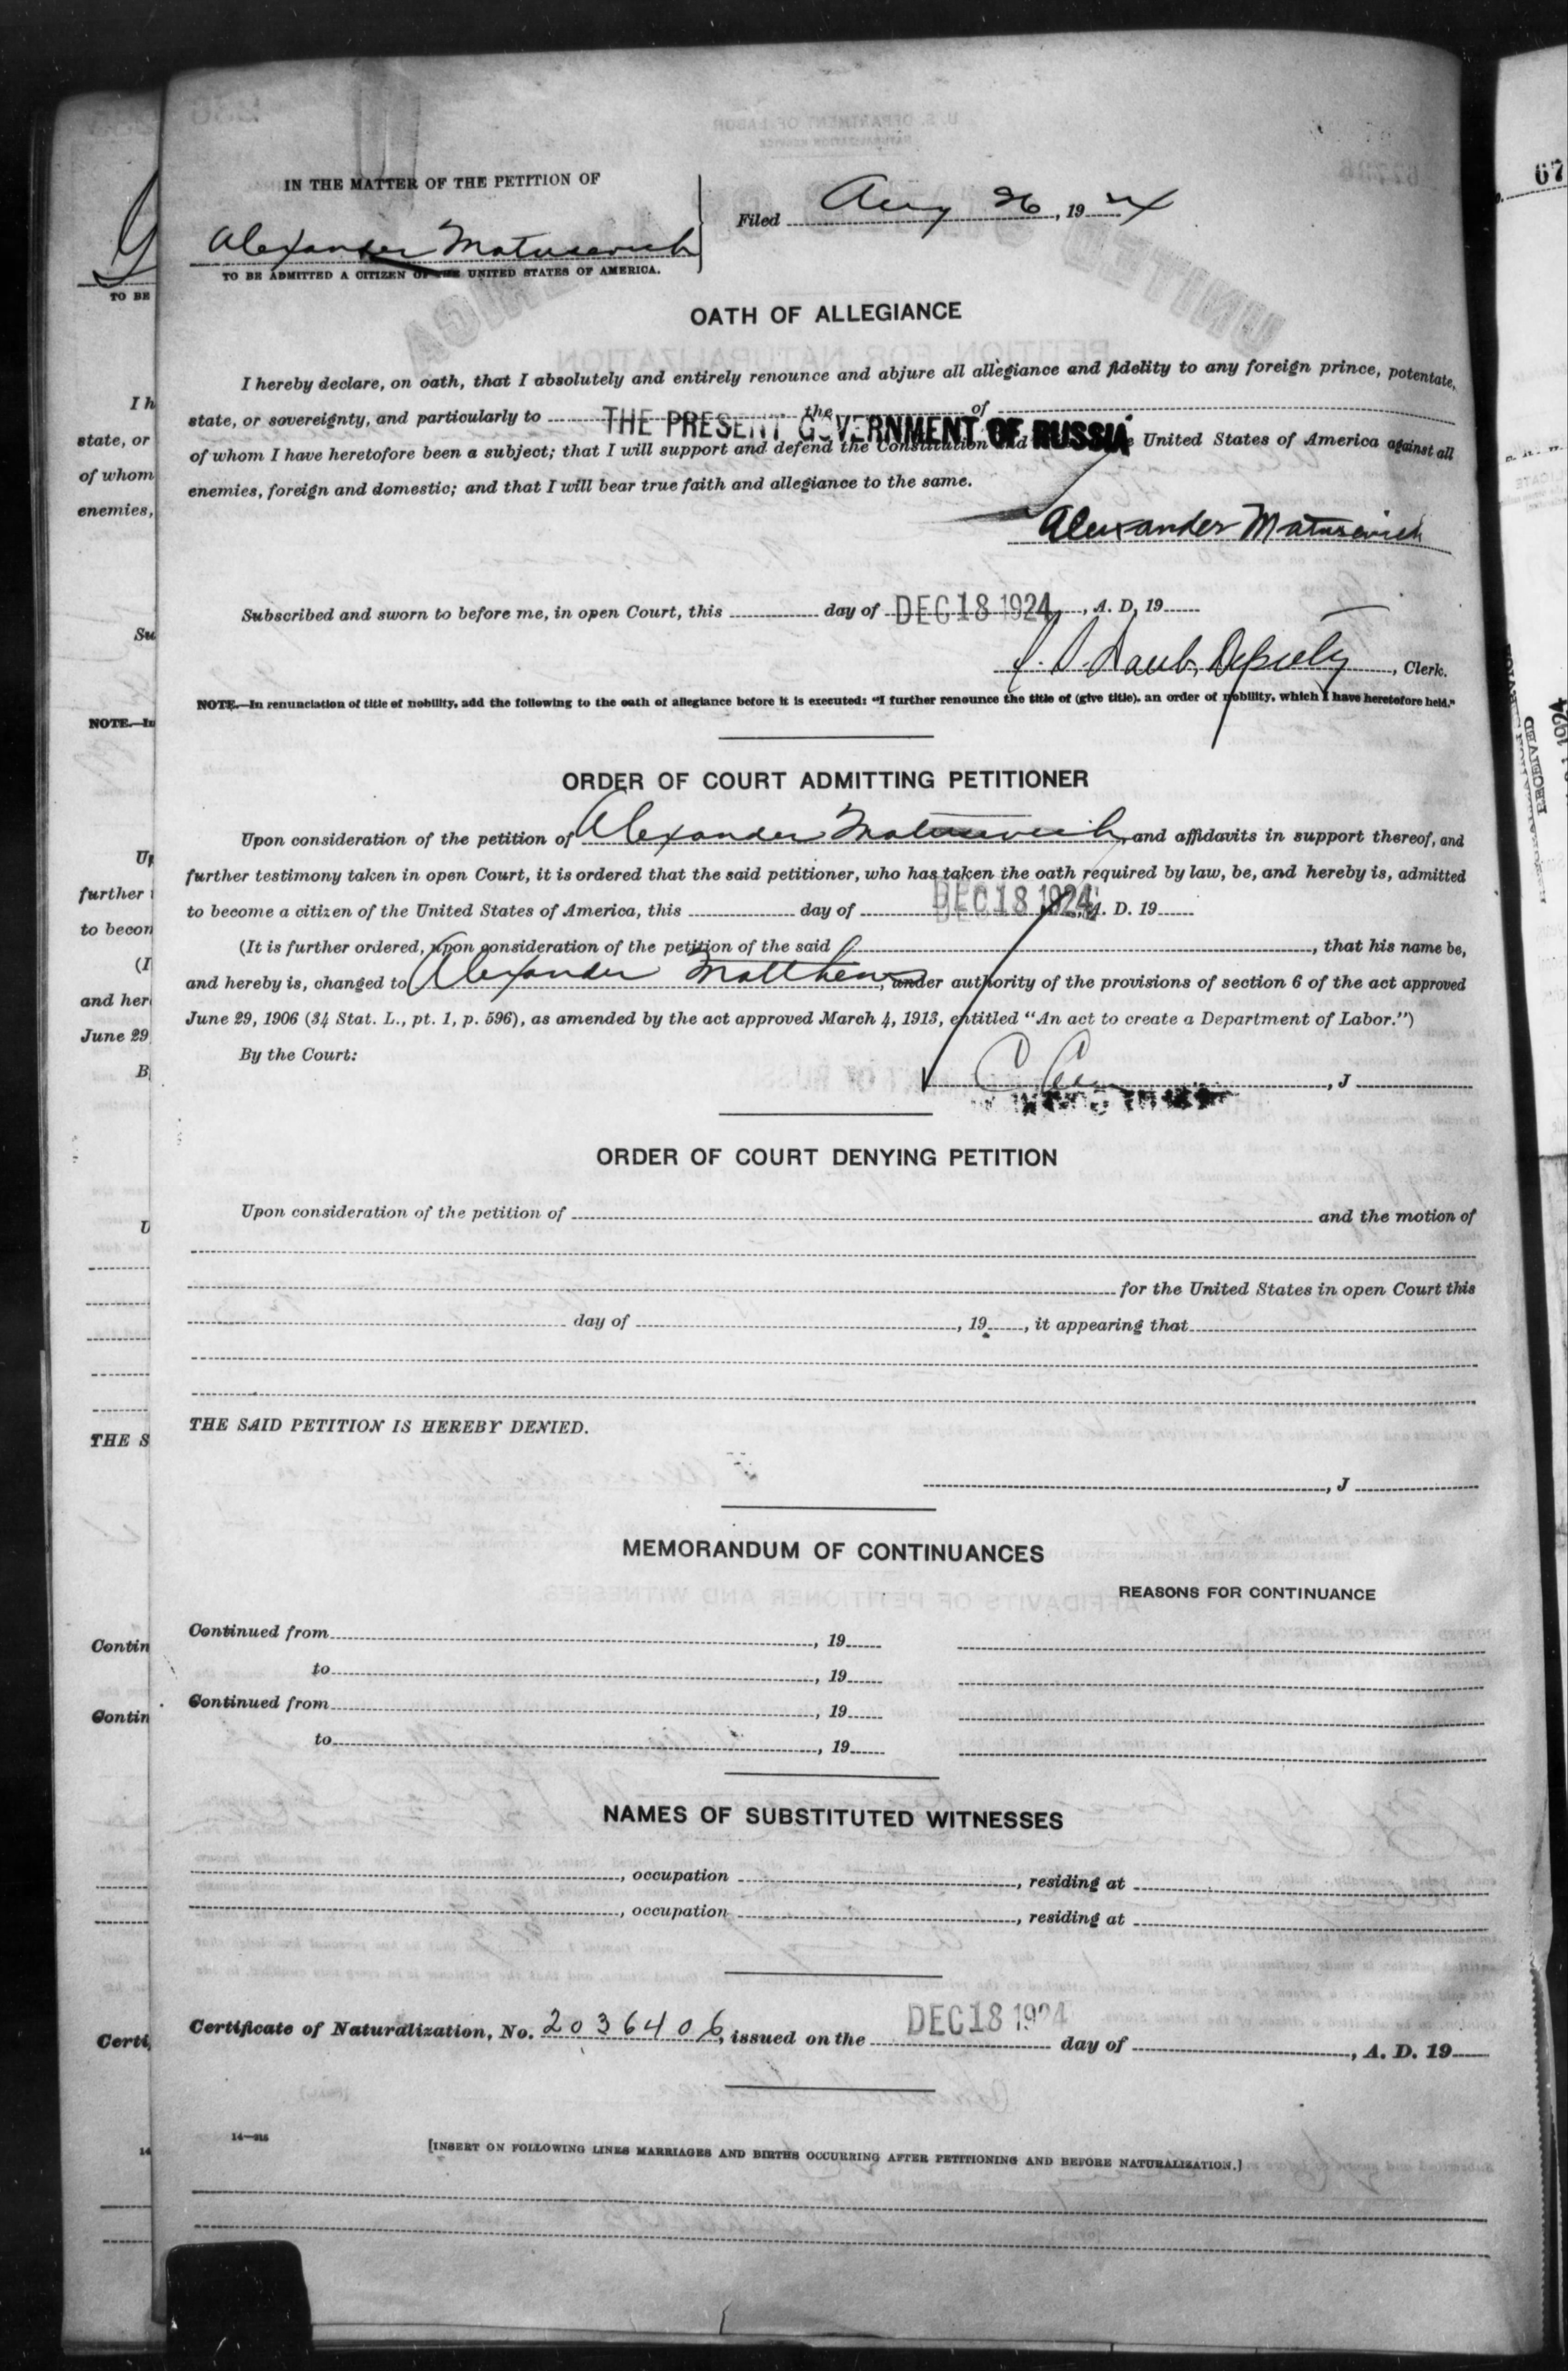 IN THE MATTER OF THE PETITION OF
Alexander Matusevich
TO BE ADMITTED A CITIZEN OF THE UNITED STATES OF AMERICA.
Filed Aug 26, 1924
OATH OF ALLEGIANCE
I hereby declare, on oath, that I absolutely and entirely renounce and abjure all allegiance and fidelity to any foreign prince, potentate,
state, or sovereignty, and particularly to THE PRESENT GOVERNMENT OF RUSSIA the of
of whom I have heretofore been a subject; that I will support and defend the Constitution and United States of America against all
enemies, foreign and domestic; and that I will bear true faith and allegiance to the same.
Alexander Matusevich
Subscribed and sworn to before me, in open Court, this day of DEC 18 1924, A. D. 19
Deputy, Clerk.
NOTE.—In renunciation of title of nobility, add the following to the oath of allegiance before it is executed: "I further renounce the title of (give title), an order of nobility, which I have heretofore held."
ORDER OF COURT ADMITTING PETITIONER
Upon consideration of the petition of Alexander Matusevich, and affidavits in support thereof, and
further testimony taken in open Court, it is ordered that the said petitioner, who has taken the oath required by law, be, and hereby is, admitted
to become a citizen of the United States of America, this day of DEC 18 1924, A. D. 19
(It is further ordered, upon consideration of the petition of the said , that his name be,
and hereby is, changed to Alexander Matthews, under authority of the provisions of section 6 of the act approved
June 29, 1906 (34 Stat. L., pt. 1, p. 596), as amended by the act approved March 4, 1913, entitled "An act to create a Department of Labor.")
By the Court:
, J
ORDER OF COURT DENYING PETITION
Upon consideration of the petition of and the motion of
for the United States in open Court this
day of , 19 , it appearing that
THE SAID PETITION IS HEREBY DENIED.
, J
MEMORANDUM OF CONTINUANCES
REASONS FOR CONTINUANCE
Continued from , 19
to , 19
Continued from , 19
to , 19
NAMES OF SUBSTITUTED WITNESSES
, occupation , residing at
, occupation , residing at
Certificate of Naturalization, No. 2036406, issued on the DEC 18 1924 day of , A. D. 19
14—915
[INSERT ON FOLLOWING LINES MARRIAGES AND BIRTHS OCCURRING AFTER PETITIONING AND BEFORE NATURALIZATION.]